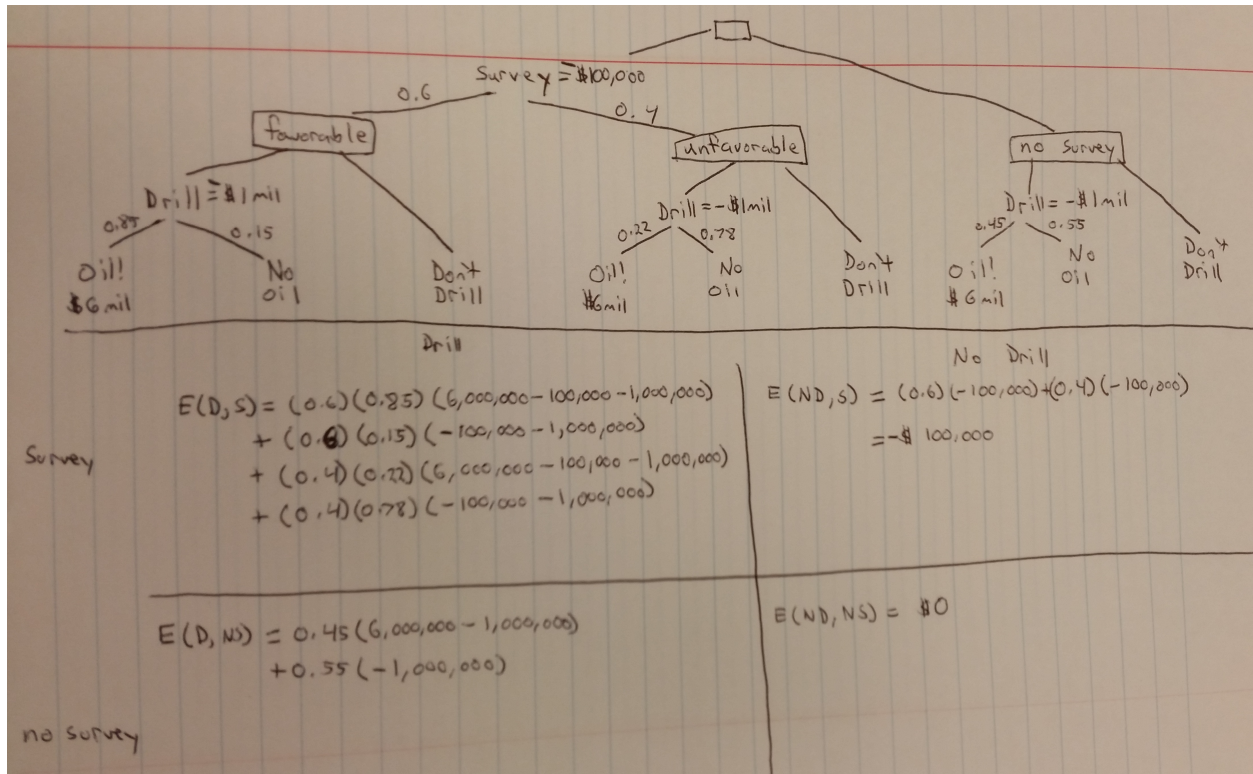 Survey = -$100,000
0.6
0.4
favorable
unfavorable
no survey
Drill = -$1mil
Drill = -$1mil
Drill = -$1mil
0.85
0.15
0.22
0.78
0.45
0.55
Oil!
$6mil
No
Oil
Don't
Drill
Oil!
$6mil
No
Oil
Don't
Drill
Oil!
$6mil
No
Oil
Don't
Drill
Drill
No Drill
Survey
E(D,S) = (0.6)(0.85)(6,000,000-100,000-1,000,000)
+ (0.6)(0.15)(-100,000-1,000,000)
+ (0.4)(0.22)(6,000,000-100,000-1,000,000)
+ (0.4)(0.78)(-100,000-1,000,000)
E(ND,S) = (0.6)(-100,000)+(0.4)(-100,000)
= -$100,000
no survey
E(D,NS) = 0.45(6,000,000-1,000,000)
+0.55(-1,000,000)
E(ND,NS) = $0